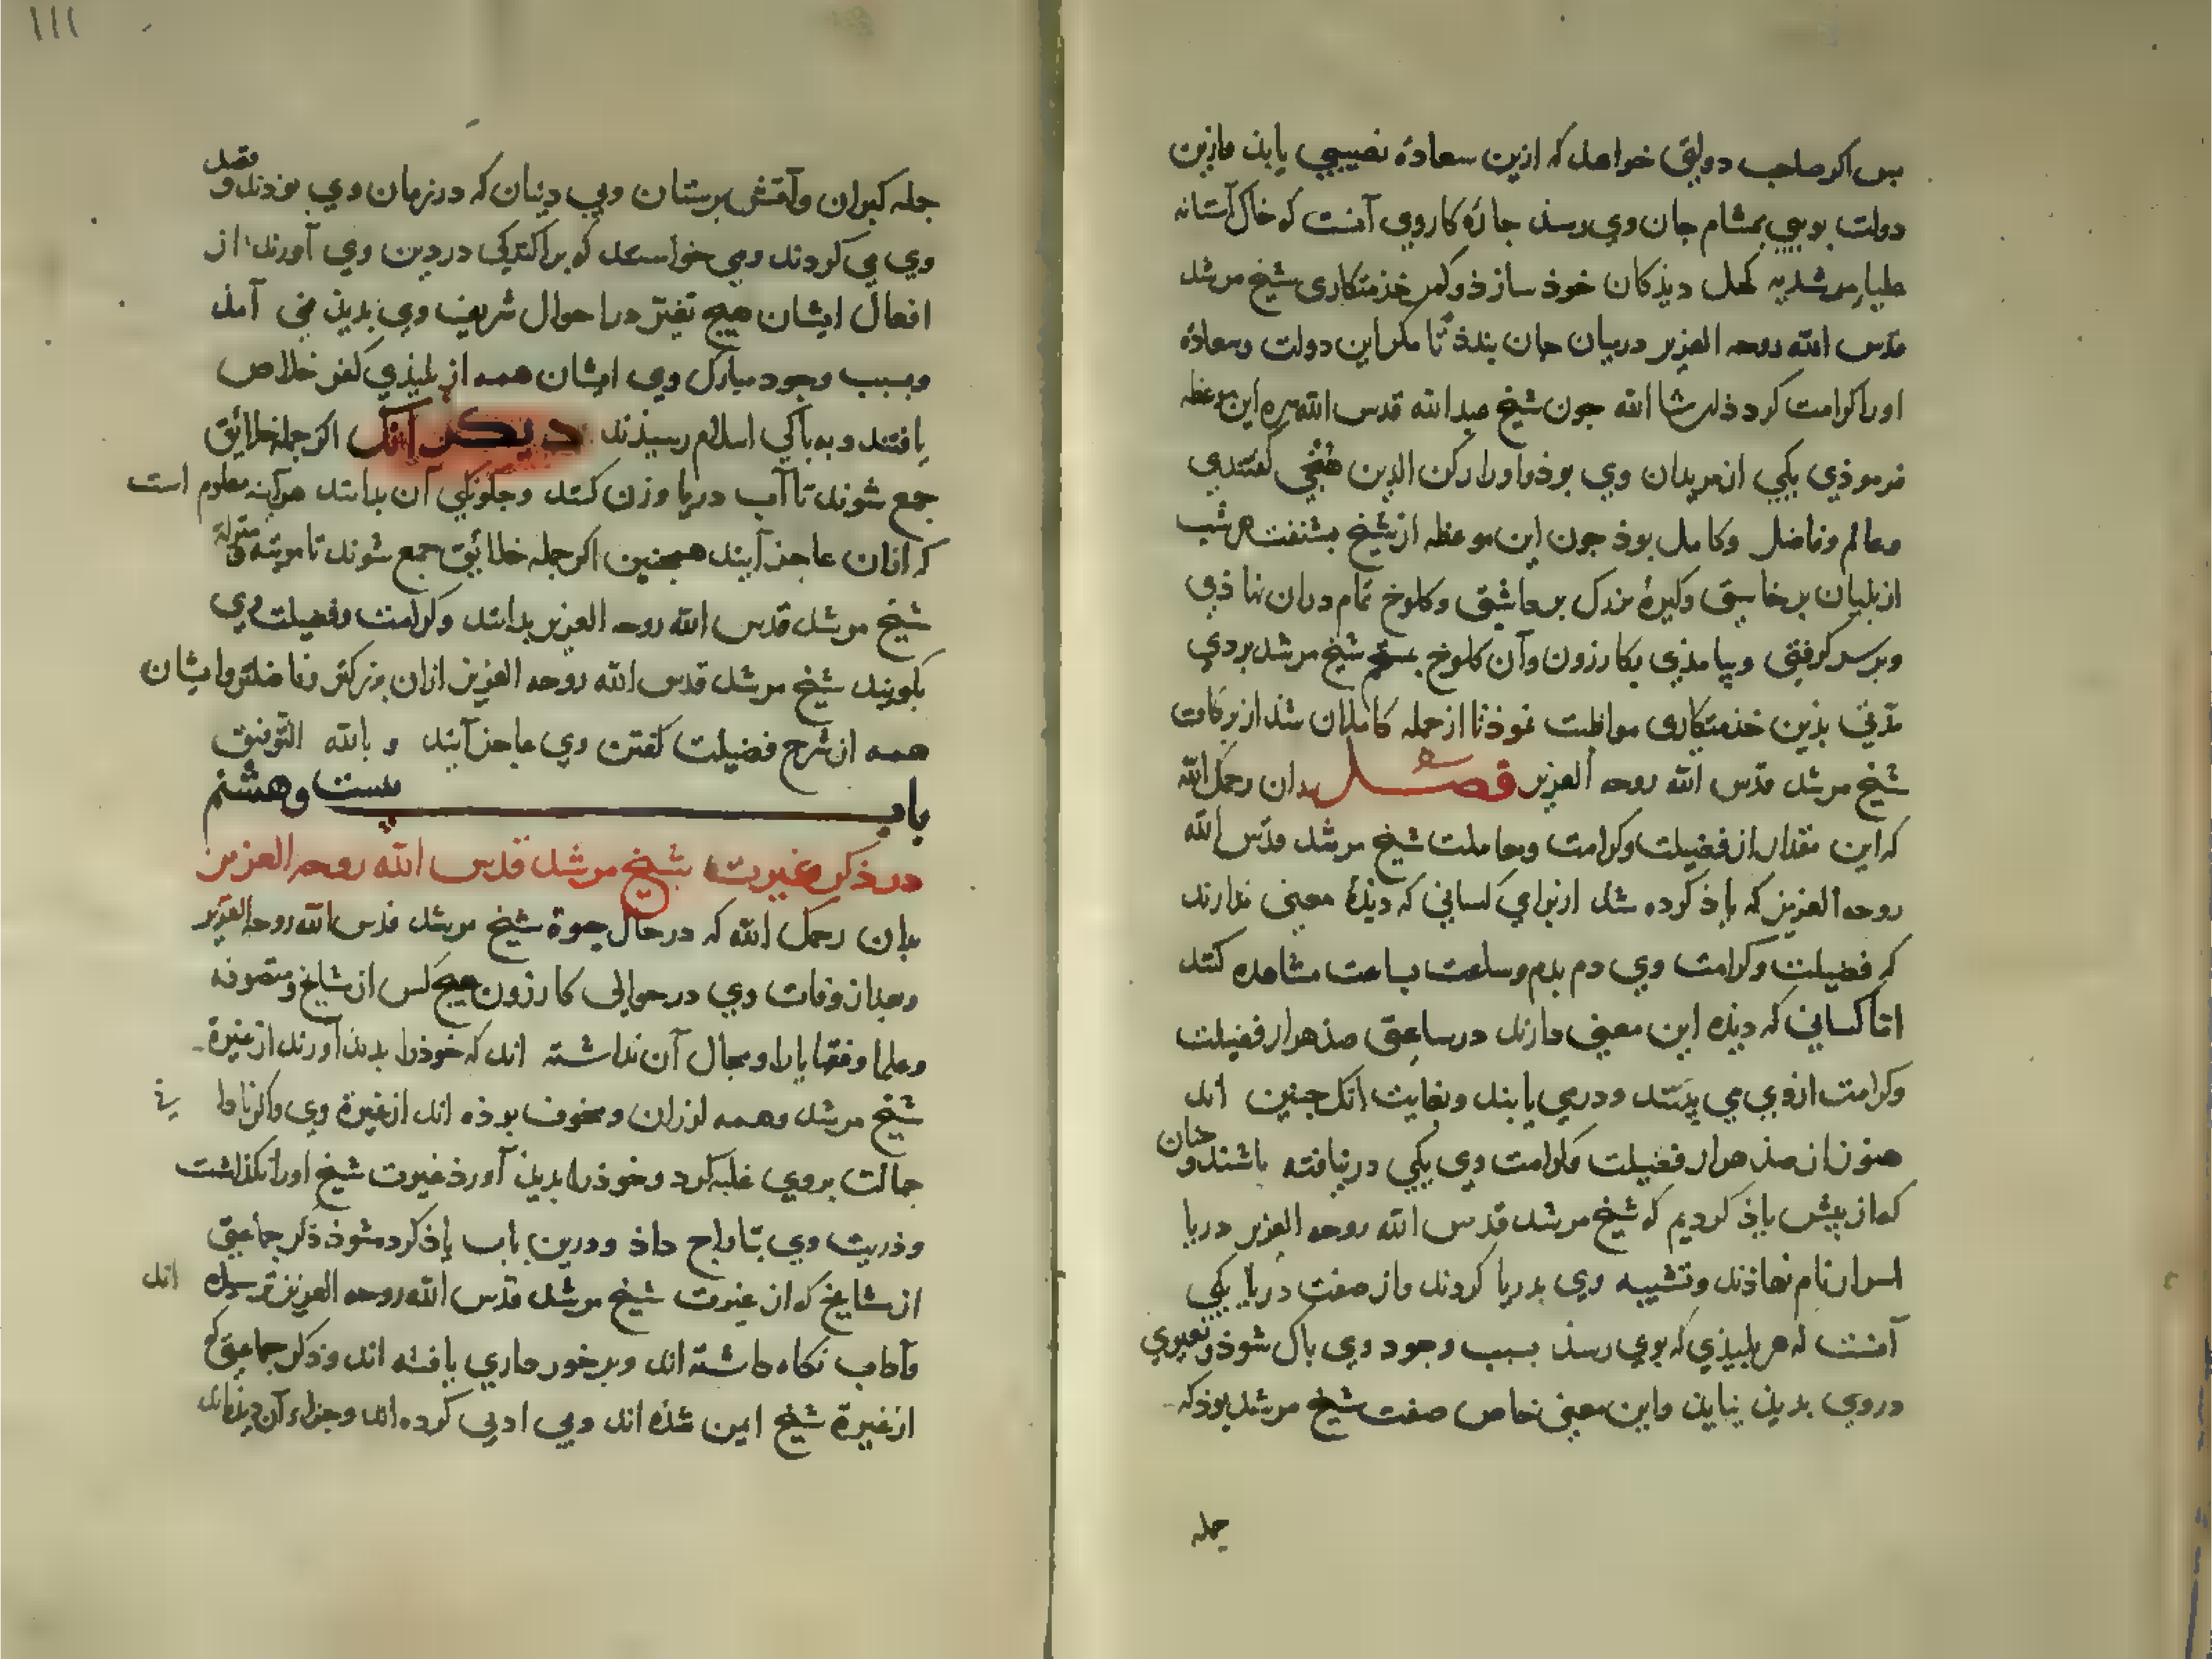 بس اکر صاحب دولتی خواهد که ازین سعادة نصیبی یابذ وازین
دولت بویی بمشام جان وی رسذ جارۀ کار وی آنست که خاک آستانه
مرشدیه کحل دیذکان خوذ سازذ وکمر خذمتکاری شیخ مرشد
قدس الله روحه العزیز درمیان جان بندذ تا مکر این دولت وسعادة
اورا کرامت کردذ انشا الله جون شیخ عبد الله قدس الله سره این موعظه
فرموذی یکی از مریدان وی بوذ واورا رکن الدین کفتندی
وعالم وفاضل وکامل بوذ جون این موعظه از شیخ بشنفت هر شب
از بلیان برخاستی وکیرۀ بزرک برداشتی وکلوخ تمام دران نهاذی
وبر سر کرفتی وبیامذی بکارزون وآن کلوخ شیخ مرشد بردی
مدتی بذین خذمتکاری مواظبت نموذ تا از جمله کاملان شذ از برکات
شیخ مرشد قدس الله روحه العزیز فصل بدان رحمک الله
که این مقدار از فضیلت وکرامت ومعاملت شیخ مرشد قدس الله
روحه العزیز که یاذ کرده شد از برای کسانی که دیذۀ معنی ندارند
که فضیلت وکرامت وی دم بدم وساعت بساعت مشاهده کنند
اما کسانی که دیذه این معنی دارند در ساعتی صذ هزار فضیلت
وکرامت ازوی می بینند ودرمی یابند وبغایت انک جنین اند
هنوز از صذ هزار فضیلت وکرامت وی یکی درنیافته باشند وجنان
که از بیش یاذ کردیم که شیخ مرشد قدس الله روحه العزیز دریا
اسرار نام نهاذند وتشبیه وی بدریا کردند واز صفت دریا یکی
آنست که هر بلیذی که بوی رسذ بسبب وجود وی باک شوذ وتغیری
در وی بدیذ نیایذ واین معنی خاص صفت شیخ مرشد بوذ که
جمله
١١١
جمله کبران وآتش برستان وبی دینان که در زمان وی بوذند وقصد
وی می کردند ومی خواستند که براکندکی در دین وی آورند از
افعال ایشان هیج تغیر در احوال شریف وی بدیذ نمی آمذ
وبسبب وجود مبارک وی ایشان همه از بلیذی کفر خلاص
یافتند وبه باکی اسلام رسیذند دیکر آنک اکر جمله خلائق
جمع شوند تا آب دریا وزن کنند وجکونکی آن بدانند هرآینه معلوم است
که ازان عاجز آیند همجنین اکر جمله خلائق جمع شوند تا مرتبه ومنزلة
شیخ مرشد قدس الله روحه العزیز بدانند وکرامت وفضیلت وی
بکویند شیخ مرشد قدس الله روحه العزیز ازان بزرکتر وفاضلتر وایشان
همه از شرح فضیلت کفتن وی عاجز آیند و بالله التوفیق
باب بیست وهشتم
در ذکر غیرت شیخ مرشد قدس الله روحه العزیز
بدان رحمک الله که در حال حیوة شیخ مرشد قدس الله روحه العزیز
وبعد از وفات وی در حوالی کارزون هیج کس از مشایخ ومتصوفه
وعلما وفقها یارا ومجال آن نداشته اند که خوذرا بدیذ آورند از غیرة
شیخ مرشد وهمه لرزان ومخوف بوذه اند از غیرة وی واکر ناداﻧﯽ
جهالت بروی غلبه کرد وخوذرا بدیذ آورذ غیرت شیخ اورا نکذاشت
وذریت وی بتاراج داذ ودرین باب یاذ کرده شوذ ذکر جماعتی
از مشایخ که از غیرت شیخ مرشد قدس الله روحه العزیز ترسیده اند
وآداب نکاه داشته اند وبرخورداری یافته اند وذکر جماعتی که
از غیرة شیخ ایمن شذه اند وبی ادبی کرده اند وجزاء آن دیذه اند